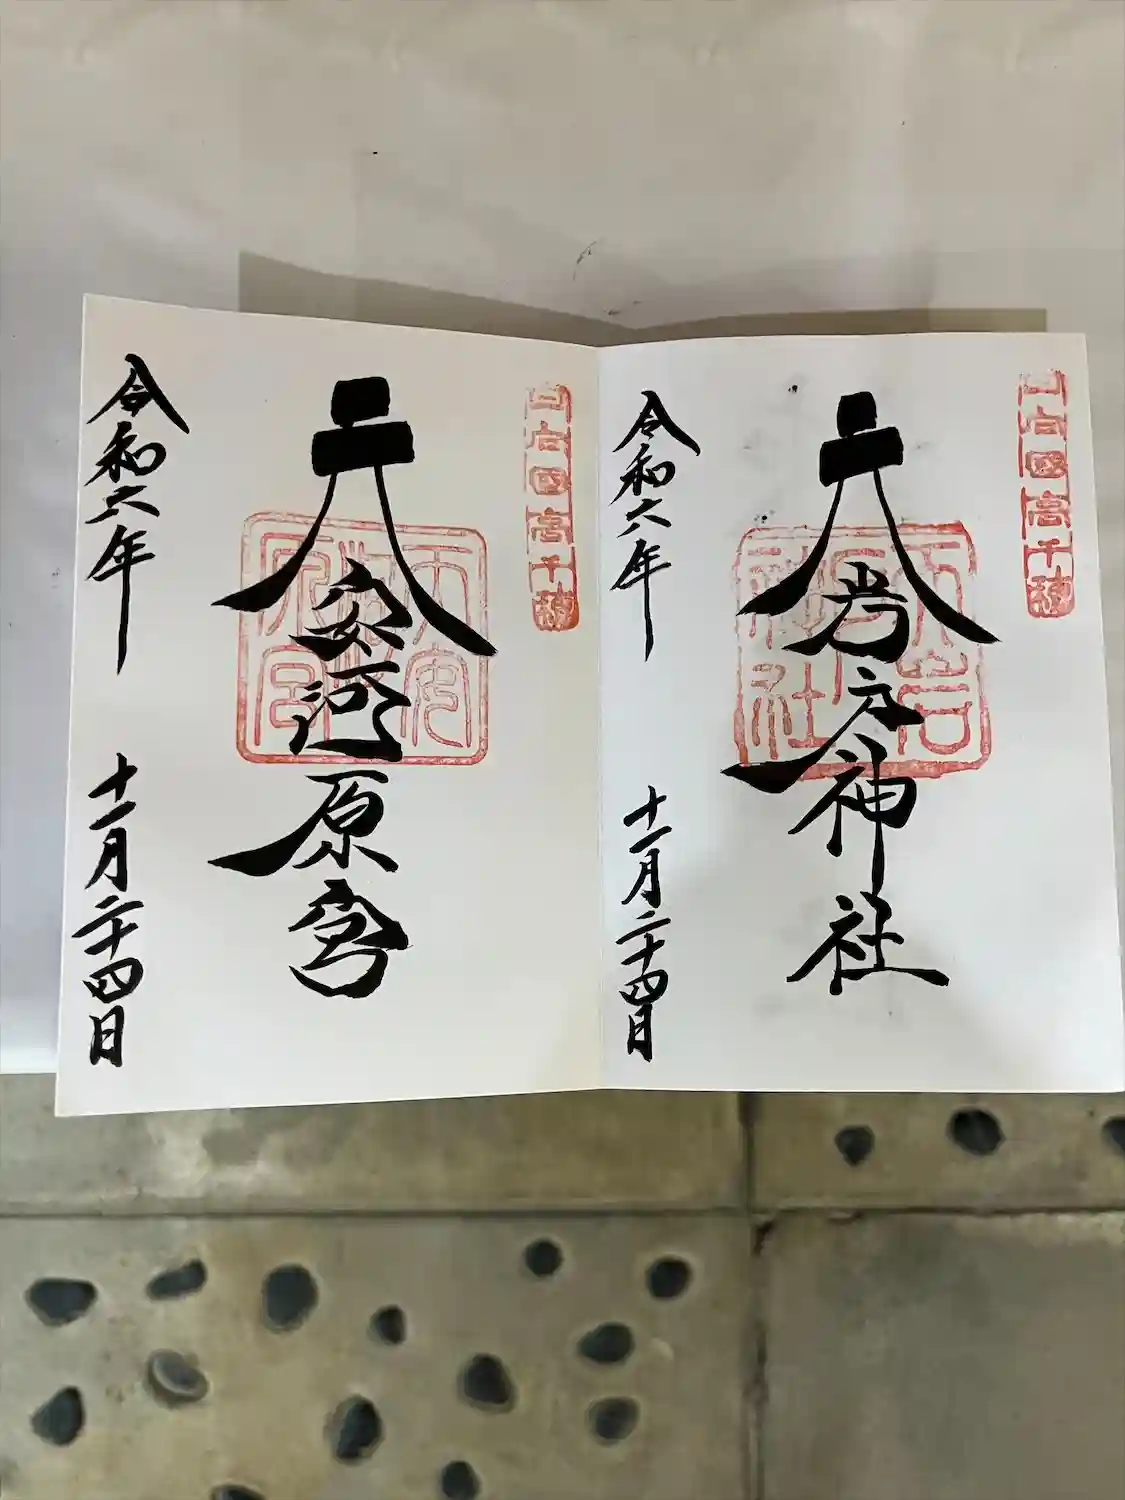 日向国高千穂
天岩戸神社
天岩戸神社
令和六年 十一月二十四日
日向国高千穂
天安河原宮
天安河原宮
令和六年 十一月二十四日